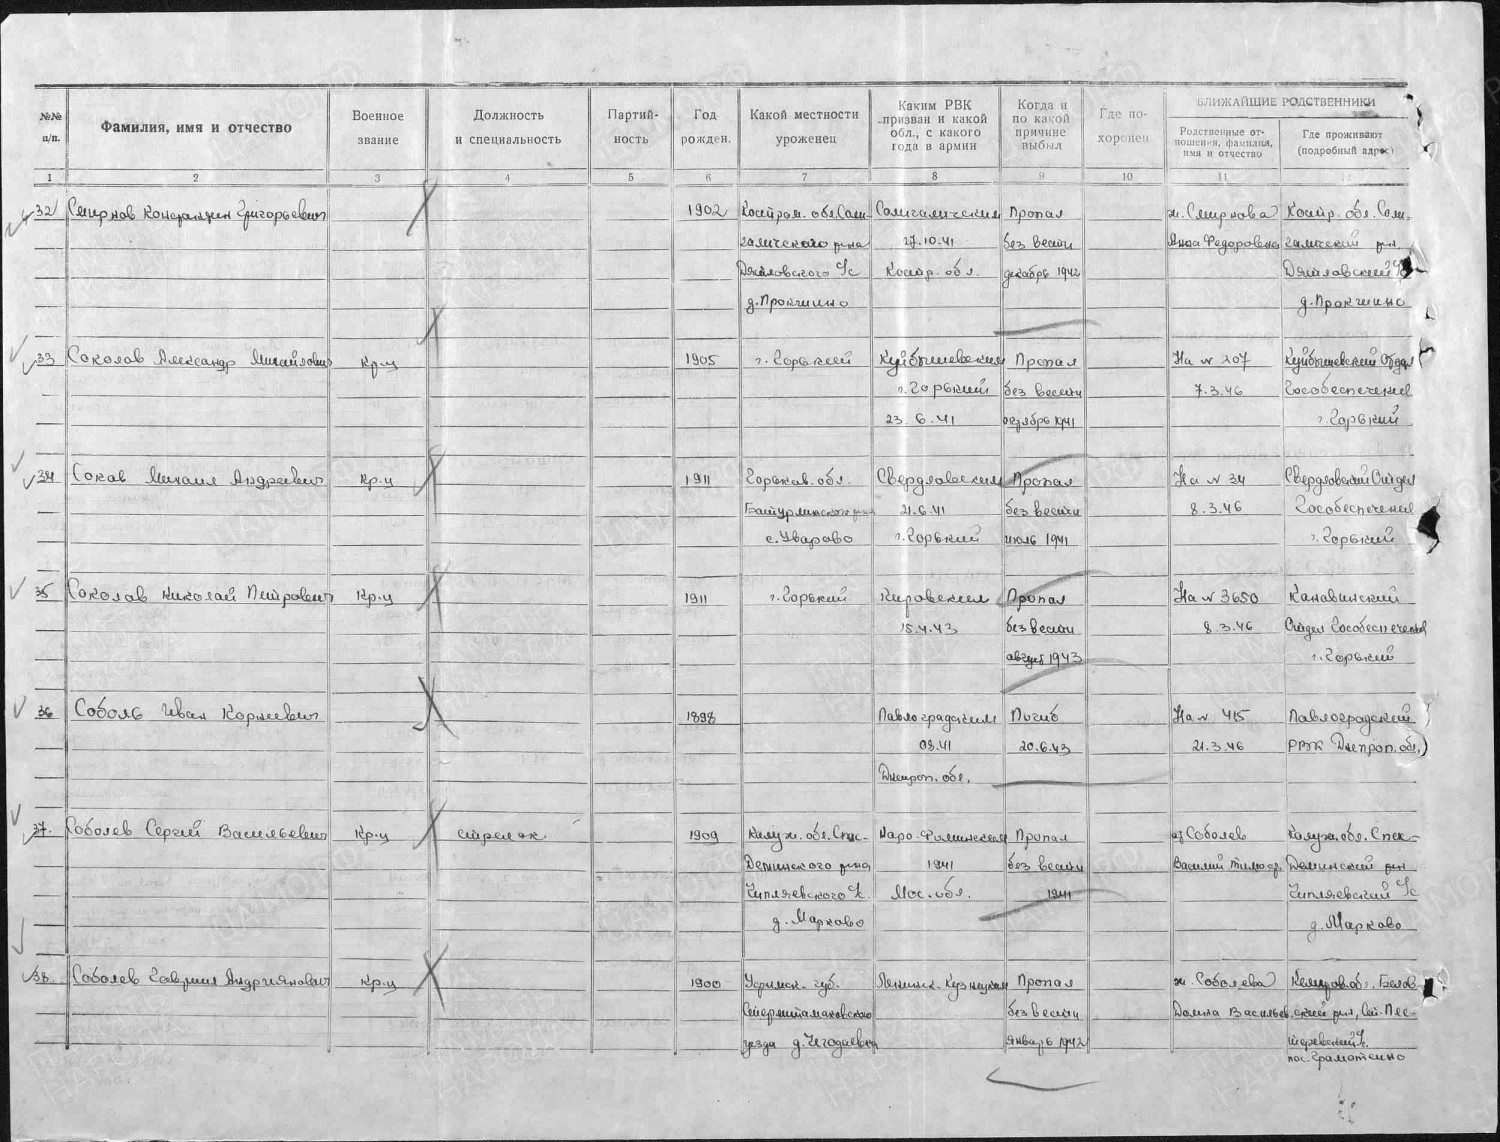 №№ п/п.
Фамилия, имя и отчество
Военное звание
Должность и специальность
Партий-
ность
Год рожден.
Какой местности уроженец
Каким РВК призван и какой обл., с какого года в армии
Когда и по какой причине выбыл
Где по-
хоронен
БЛИЖАЙШИЕ РОДСТВЕННИКИ
Родственные от-
ношения, фамилия, имя и отчество
Где проживают (подробный адрес)
1 2 3 4 5 6 7 8 9 10 11 12
32 Смирнов Константин Григорьевич 1902 Костром. обл. Соли- Солигаличским Пропал ж. Смирнова Костр. обл. Соли-
галичского р-на 27.10.41 без вести Анна Федоровна галичский р-н.
Дятловского с/с Костр. обл. декабрь 1942 Дятловский с/с
д. Прокшино д. Прокшино
33 Соколов Александр Михайлович Кр-ц 1905 г. Горький Куйбышевским Пропал На № 207 Куйбышевский Отдел
г. Горький без вести 7.3.46 Гособеспечения
23. 6. 41 октябрь 1941 г. Горький
34 Соков Михаил Андреевич Кр-ц 1911 Горьков. обл. Свердловским Пропал На № 34 Свердловский Отдел
Батурлинского р-на 21.6.41 без вести 8.3.46 Гособеспечения
с. Уварово г. Горький июль 1941 г. Горький
35 Соколов Николай Петрович Кр-ц 1911 г. Горький Кировским Пропал На № 3650 Канавинский
15.4.43 без вести 8.3.46 Отдел Гособеспечения
август 1943 г. Горький
36 Соболь Иван Корнеевич 1898 Павлоградским Погиб На № 415 Павлоградский
08.41 20.6.43 21.3.46 РВК Днепроп. обл.
Днепроп. обл.
37. Соболев Сергей Васильевич Кр-ц стрелок 1909 Калуж. обл. Спас- Наро-Фоминским Пропал Соболев Калуж. обл. Спас-
Деминского р-на 1941 без вести Василий Тимоф. Деминский р-н
Чипляевского с/с. Мос. обл. 1941 Чипляевский с/с
д. Марково д. Марково
38. Соболев Гавриил Андриянович Кр-ц 1900 Уфимск. губ. Ленинск-Кузнецким Пропал ж. Соболева Кемеров. об. Белов-
Стерлитамаковского без вести Васильев. ский р-н,
уезда январь 1942
пос. Грамотеино